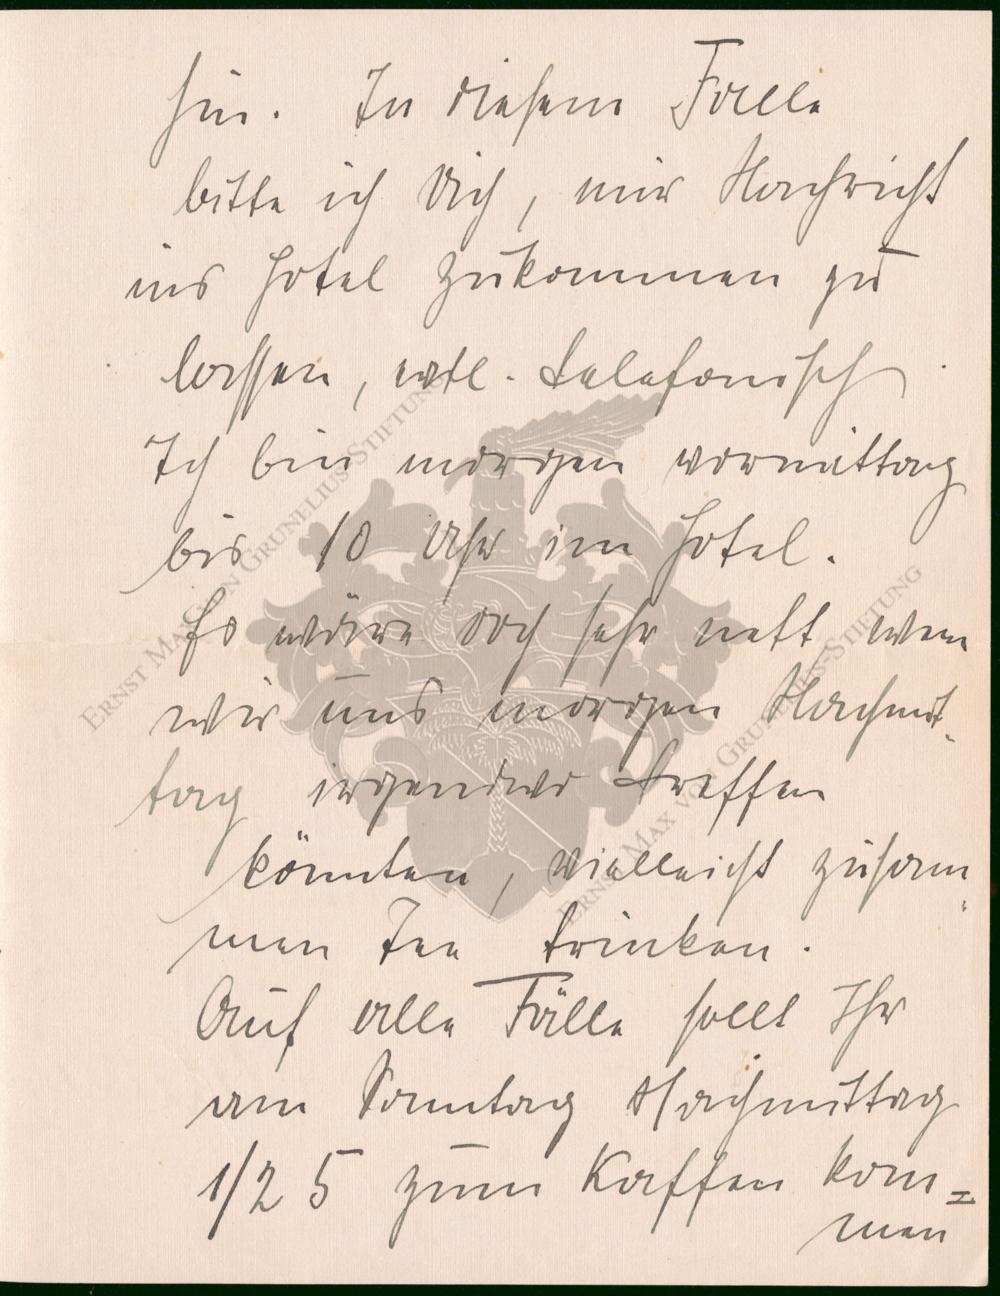 hin. In diesem Falle
bitte ich Dich, mir Nachricht
ins Hotel zukommen zu
lassen, evtl. telefonisch.
Ich bin morgen vormittag
bis 10 Uhr im Hotel.
Es wäre doch sehr nett wenn
wir uns morgen Nachmit-
tag irgendwo treffen
könnten, vielleicht zusam-
men Tee trinken.
Auf alle Fälle sollt Ihr
am Sonntag Nachmittag
1/2 5 zum Kaffee kom=
men
ERNST MAX VON GRUNELIUS-STIFTUNG
ERNST MAX VON GRUNELIUS-STIFTUNG